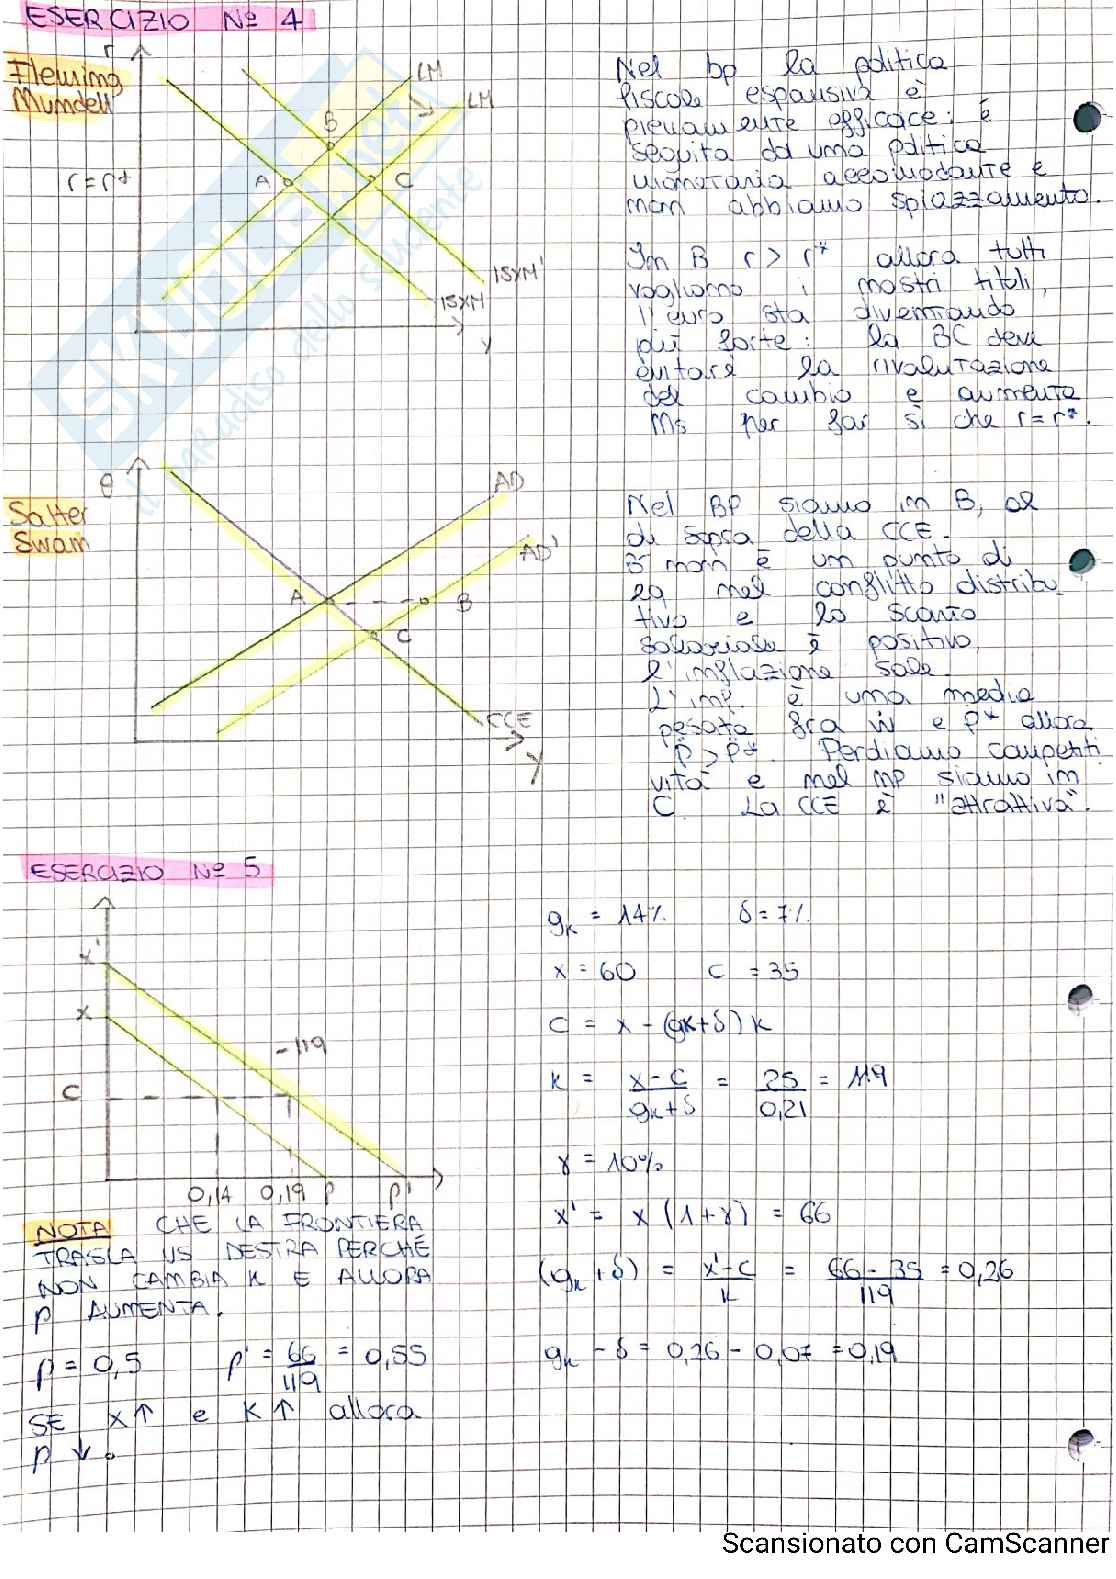 ESERCIZIO Nº 4
Fleming
Mundell
r
LM
LM
B
r=r*
A
C
ISXM'
ISXM
Y
Nel bp la politica
fiscale espansiva è
pienamente efficace: è
seguita da una politica
monetaria accomodante e
non abbiamo spiazzamento.
In B r > r* allora tutti
vogliono i nostri titoli,
l'euro sta diventando
più forte: la BC deve
evitare la rivalutazione
del cambio e aumenta
Ms per far sì che r=r*.
Salter
Swan
θ
AD
AD'
A
B
C
CCE
Y
Nel BP siamo in B, al
di sopra della CCE.
B non è un punto di
eq nel conflitto distribu
tivo e lo scarto
salariale è positivo,
l'inflazione sale.
L'inf. è una media
pesata fra ẇ e ṗ* allora
ṗ > ṗ*. Perdiamo competiti
vità e nel MP siamo in
C. La CCE è "attrattiva".
ESERCIZIO Nº 5
x'
x
-119
C
0,14 0,19 ρ ρ'
NOTA CHE LA FRONTIERA
TRASLA VS DESTRA PERCHÉ
NON CAMBIA K E ALLORA
ρ AUMENTA.
ρ = 0,5 ρ' = 66/119 = 0,55
SE X↑ e K↑ allora
ρ ↓.
gk = 14% δ = 7%
x = 60 c = 35
c = x - (gk+δ) k
k = x-c/gk+δ = 25/0,21 = 119
γ = 10%
x' = x (1+γ) = 66
(gk+δ) = x'-c/k = 66-35/119 = 0,26
gk - δ = 0,26 - 0,07 = 0,19
il paradiso dello studente
Scansionato con CamScanner